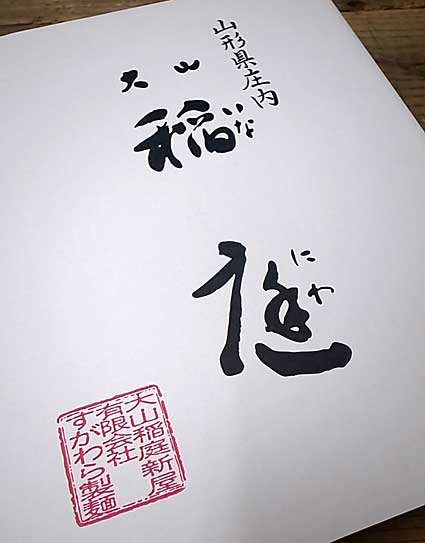 山形県庄内
大山
稲庭
いな
にわ
大山稲庭新屋
有限会社
すがわら製麺